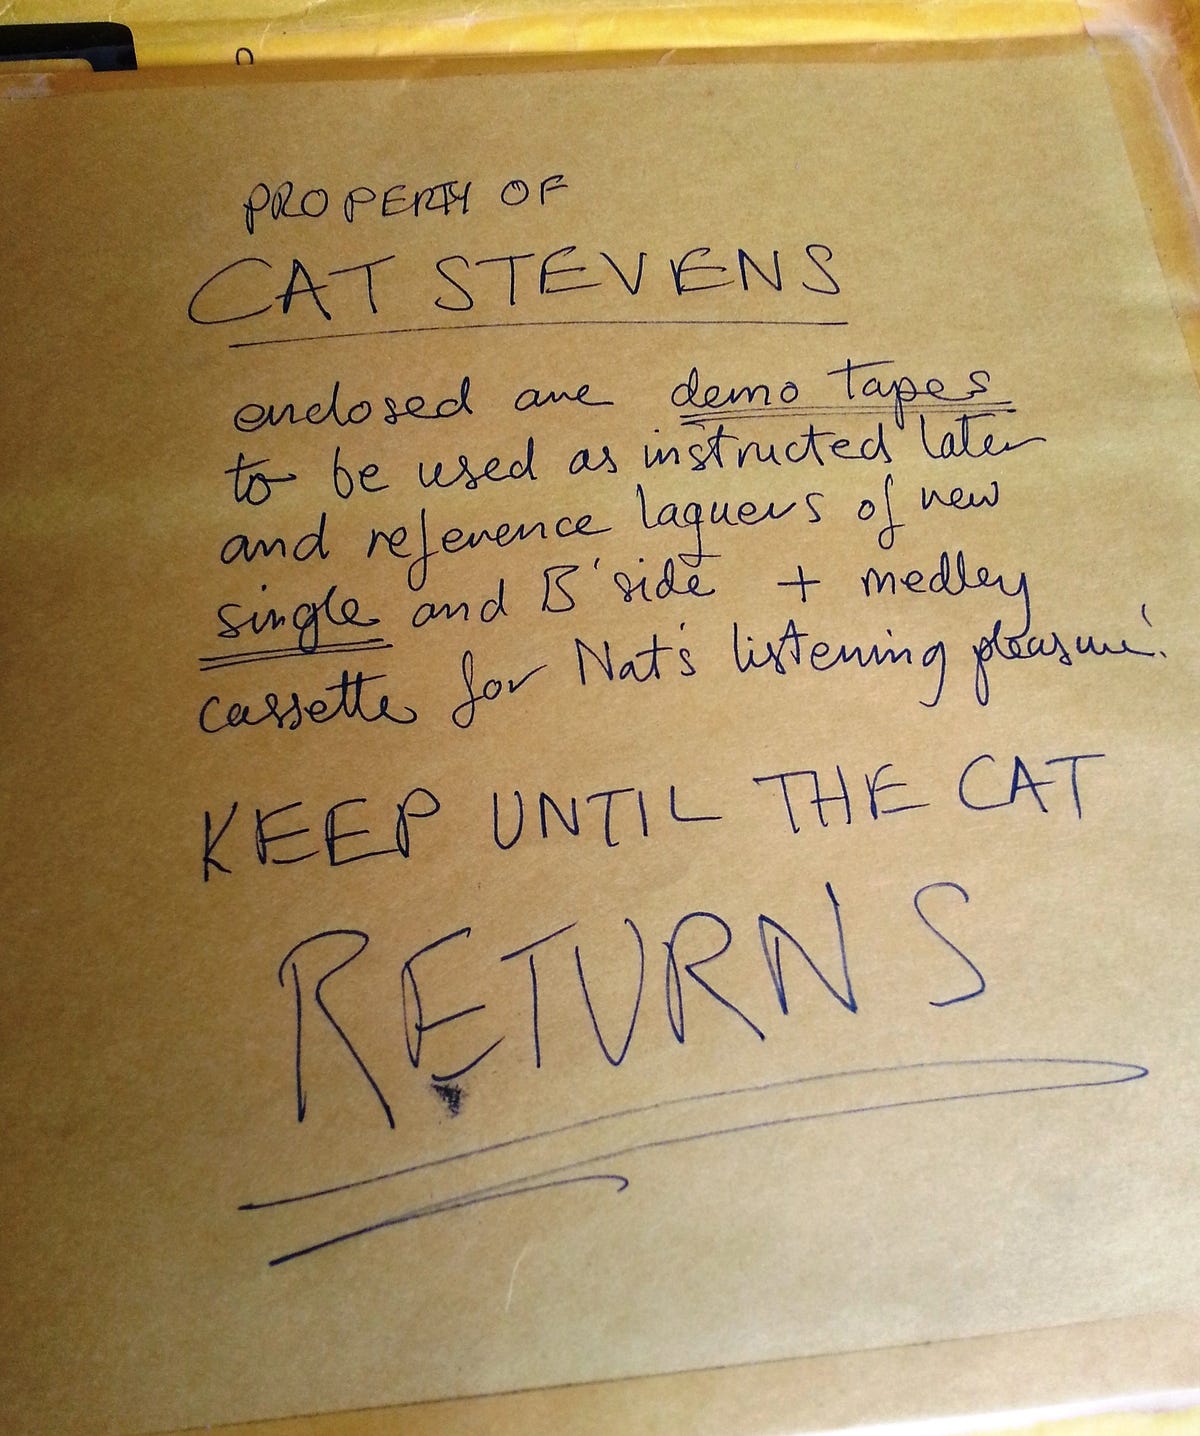 PROPERTY OF
CAT STEVENS
enclosed are demo tapes
to be used as instructed later
and reference laquers of new
single and B'side + medley
cassette for Nat's listening pleasure!
KEEP UNTIL THE CAT
RETURNS